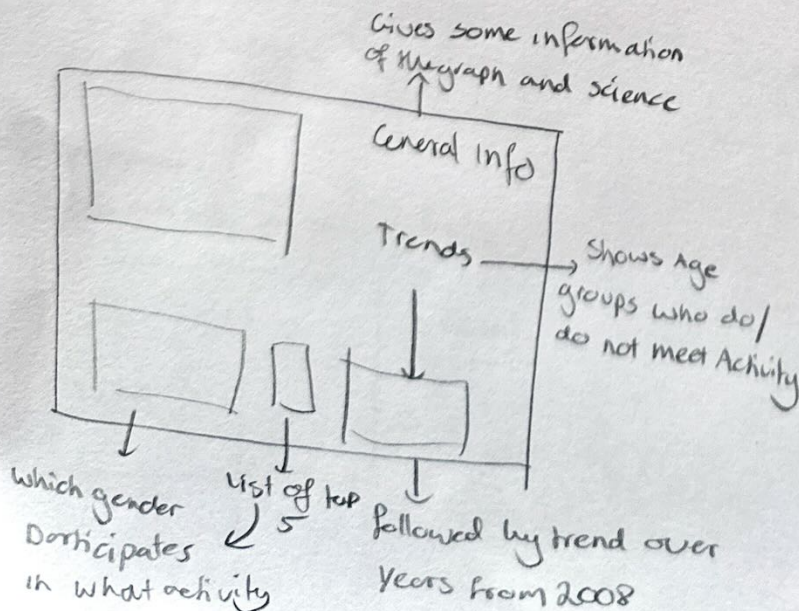 Gives some information
of the graph and science
General Info
Trends
Shows Age
groups who do/
do not meet Activity
which gender
Participates
in what activity
List of top
5
followed by trend over
years from 2008